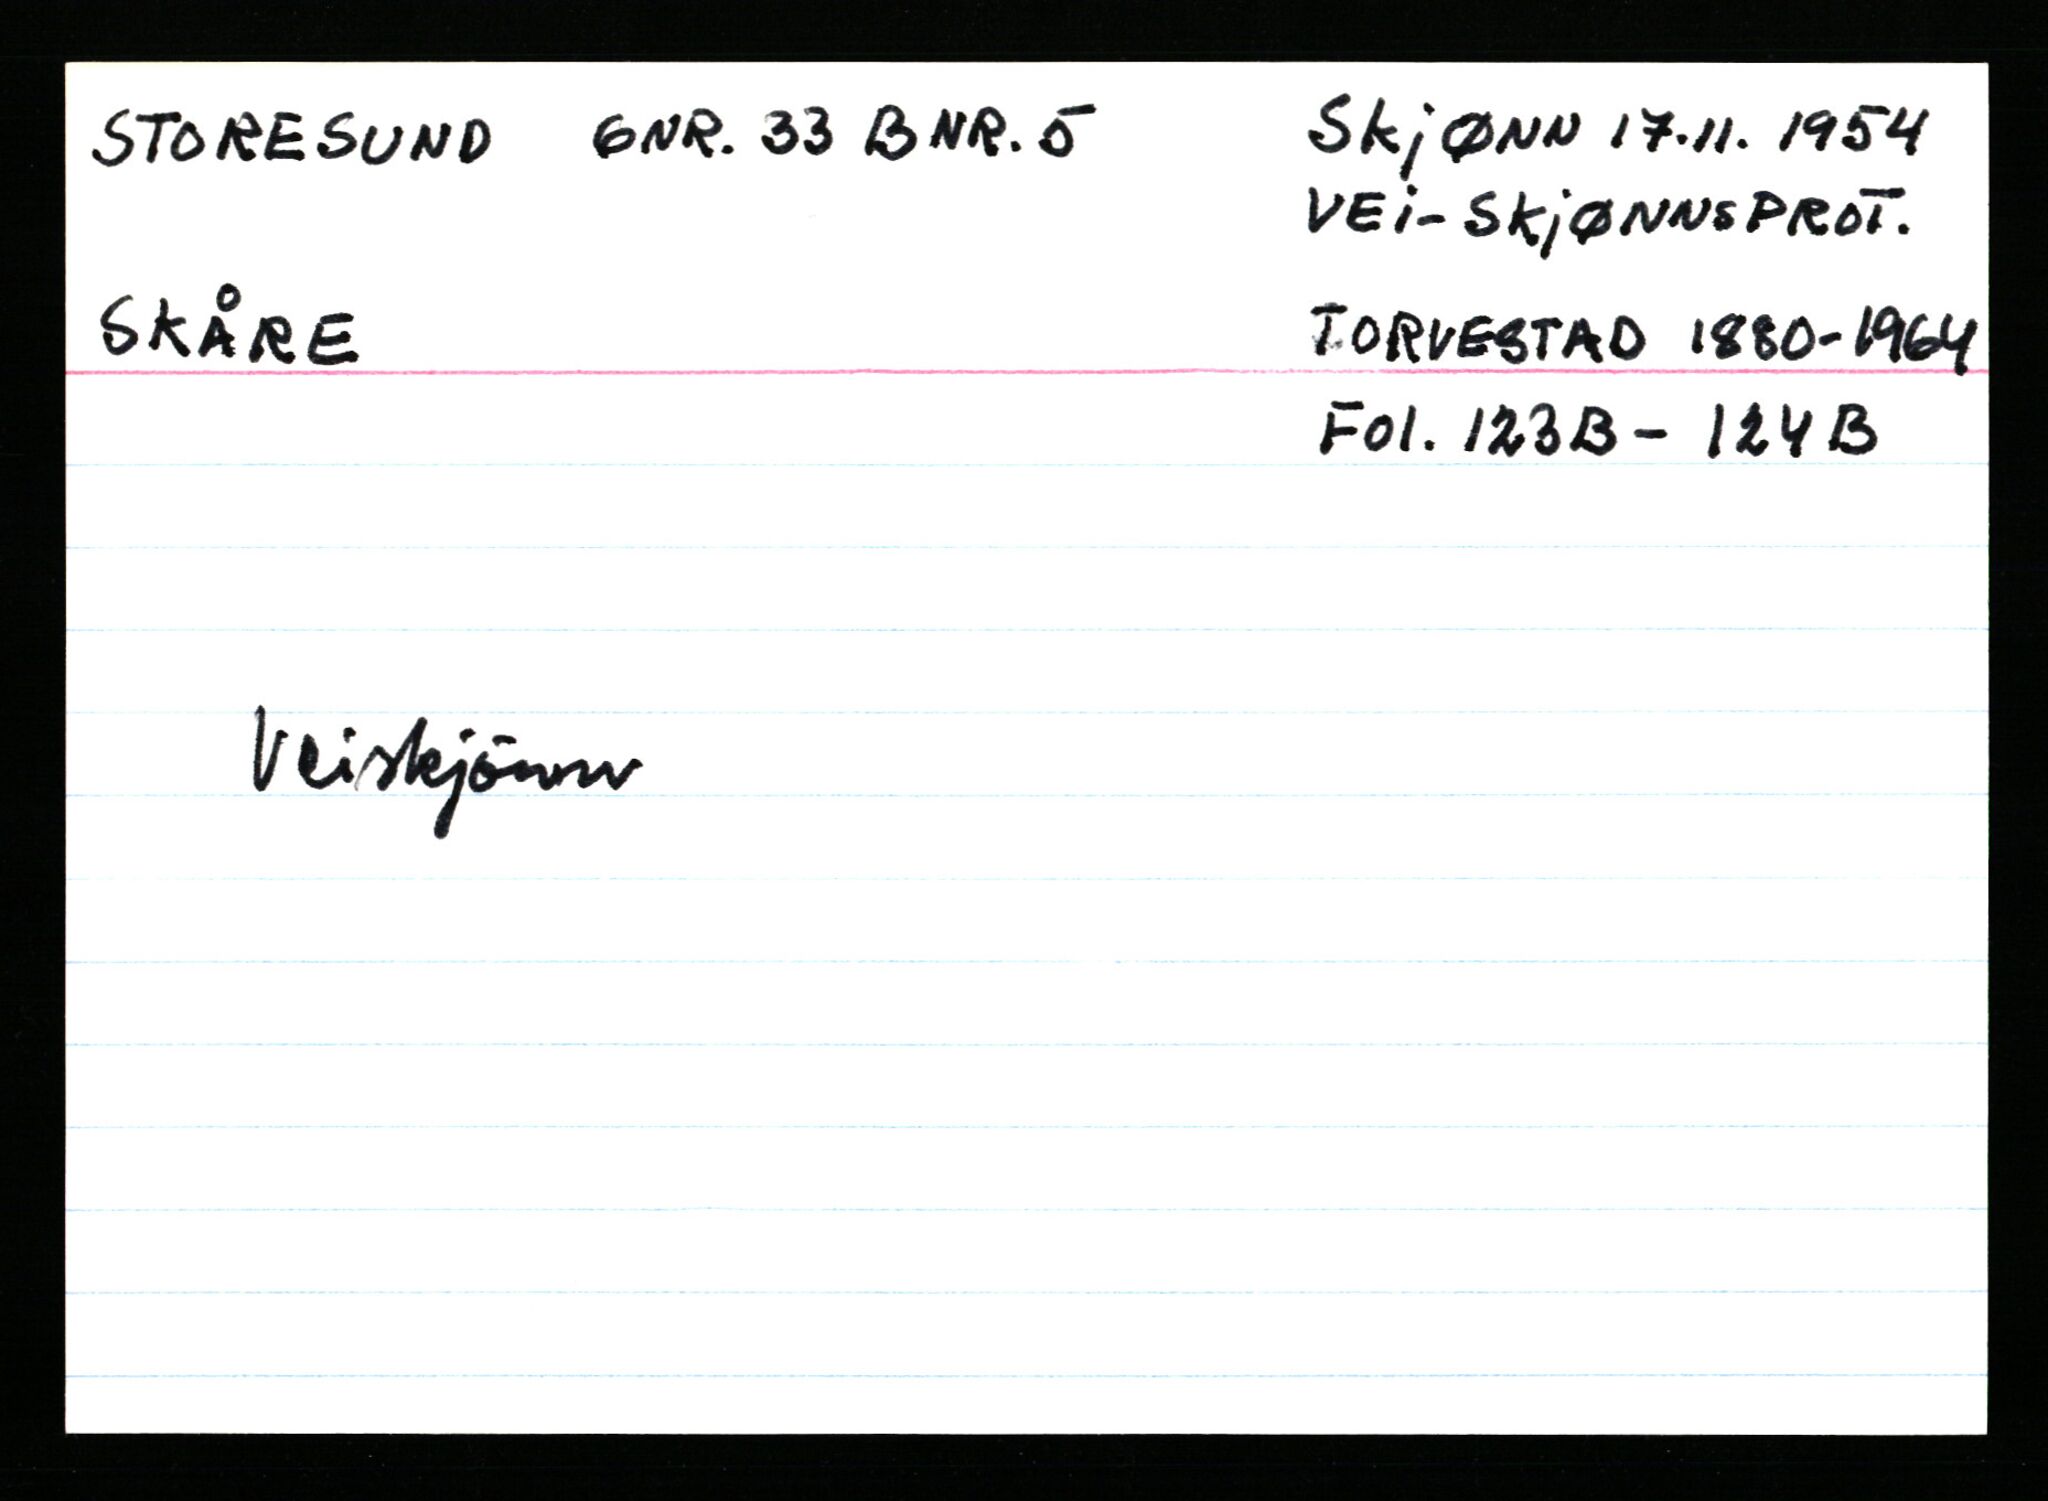 STORESUND GNR. 33 BNR. 5
SKJØNN 17.11. 1954
VEI-SKJØNNSPROT.
SKÅRE
TORVESTAD 1880-1964
Fol. 123B - 124B
Veiskjönn